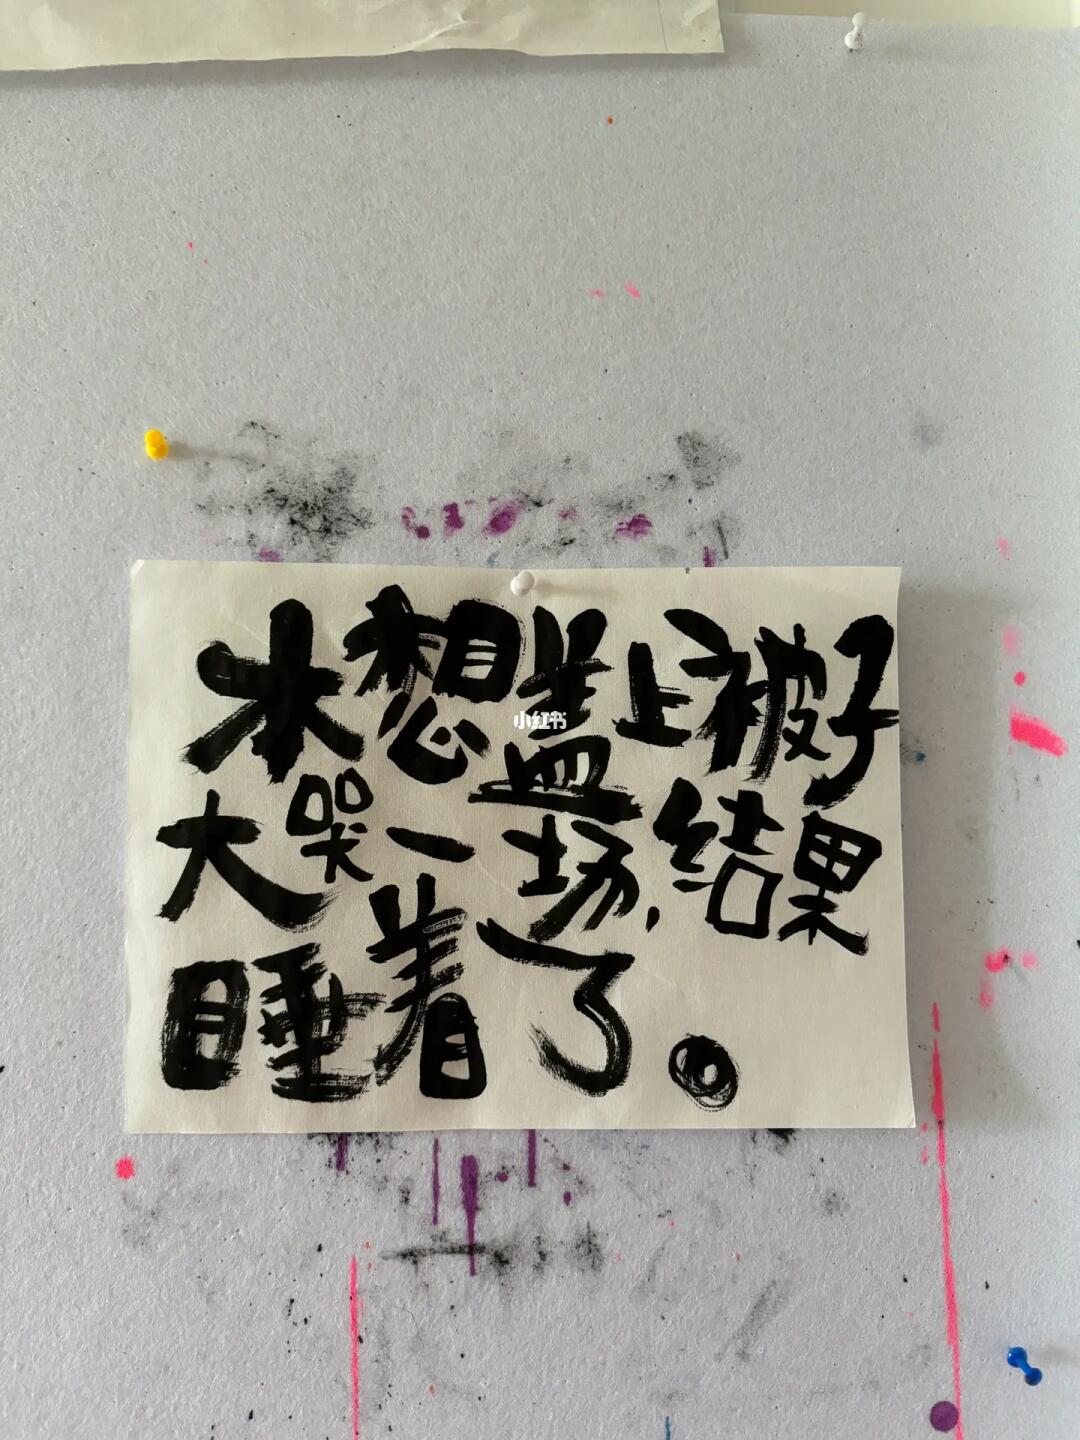 本想盖上被子
大哭一场,结果
睡着了。
小红书